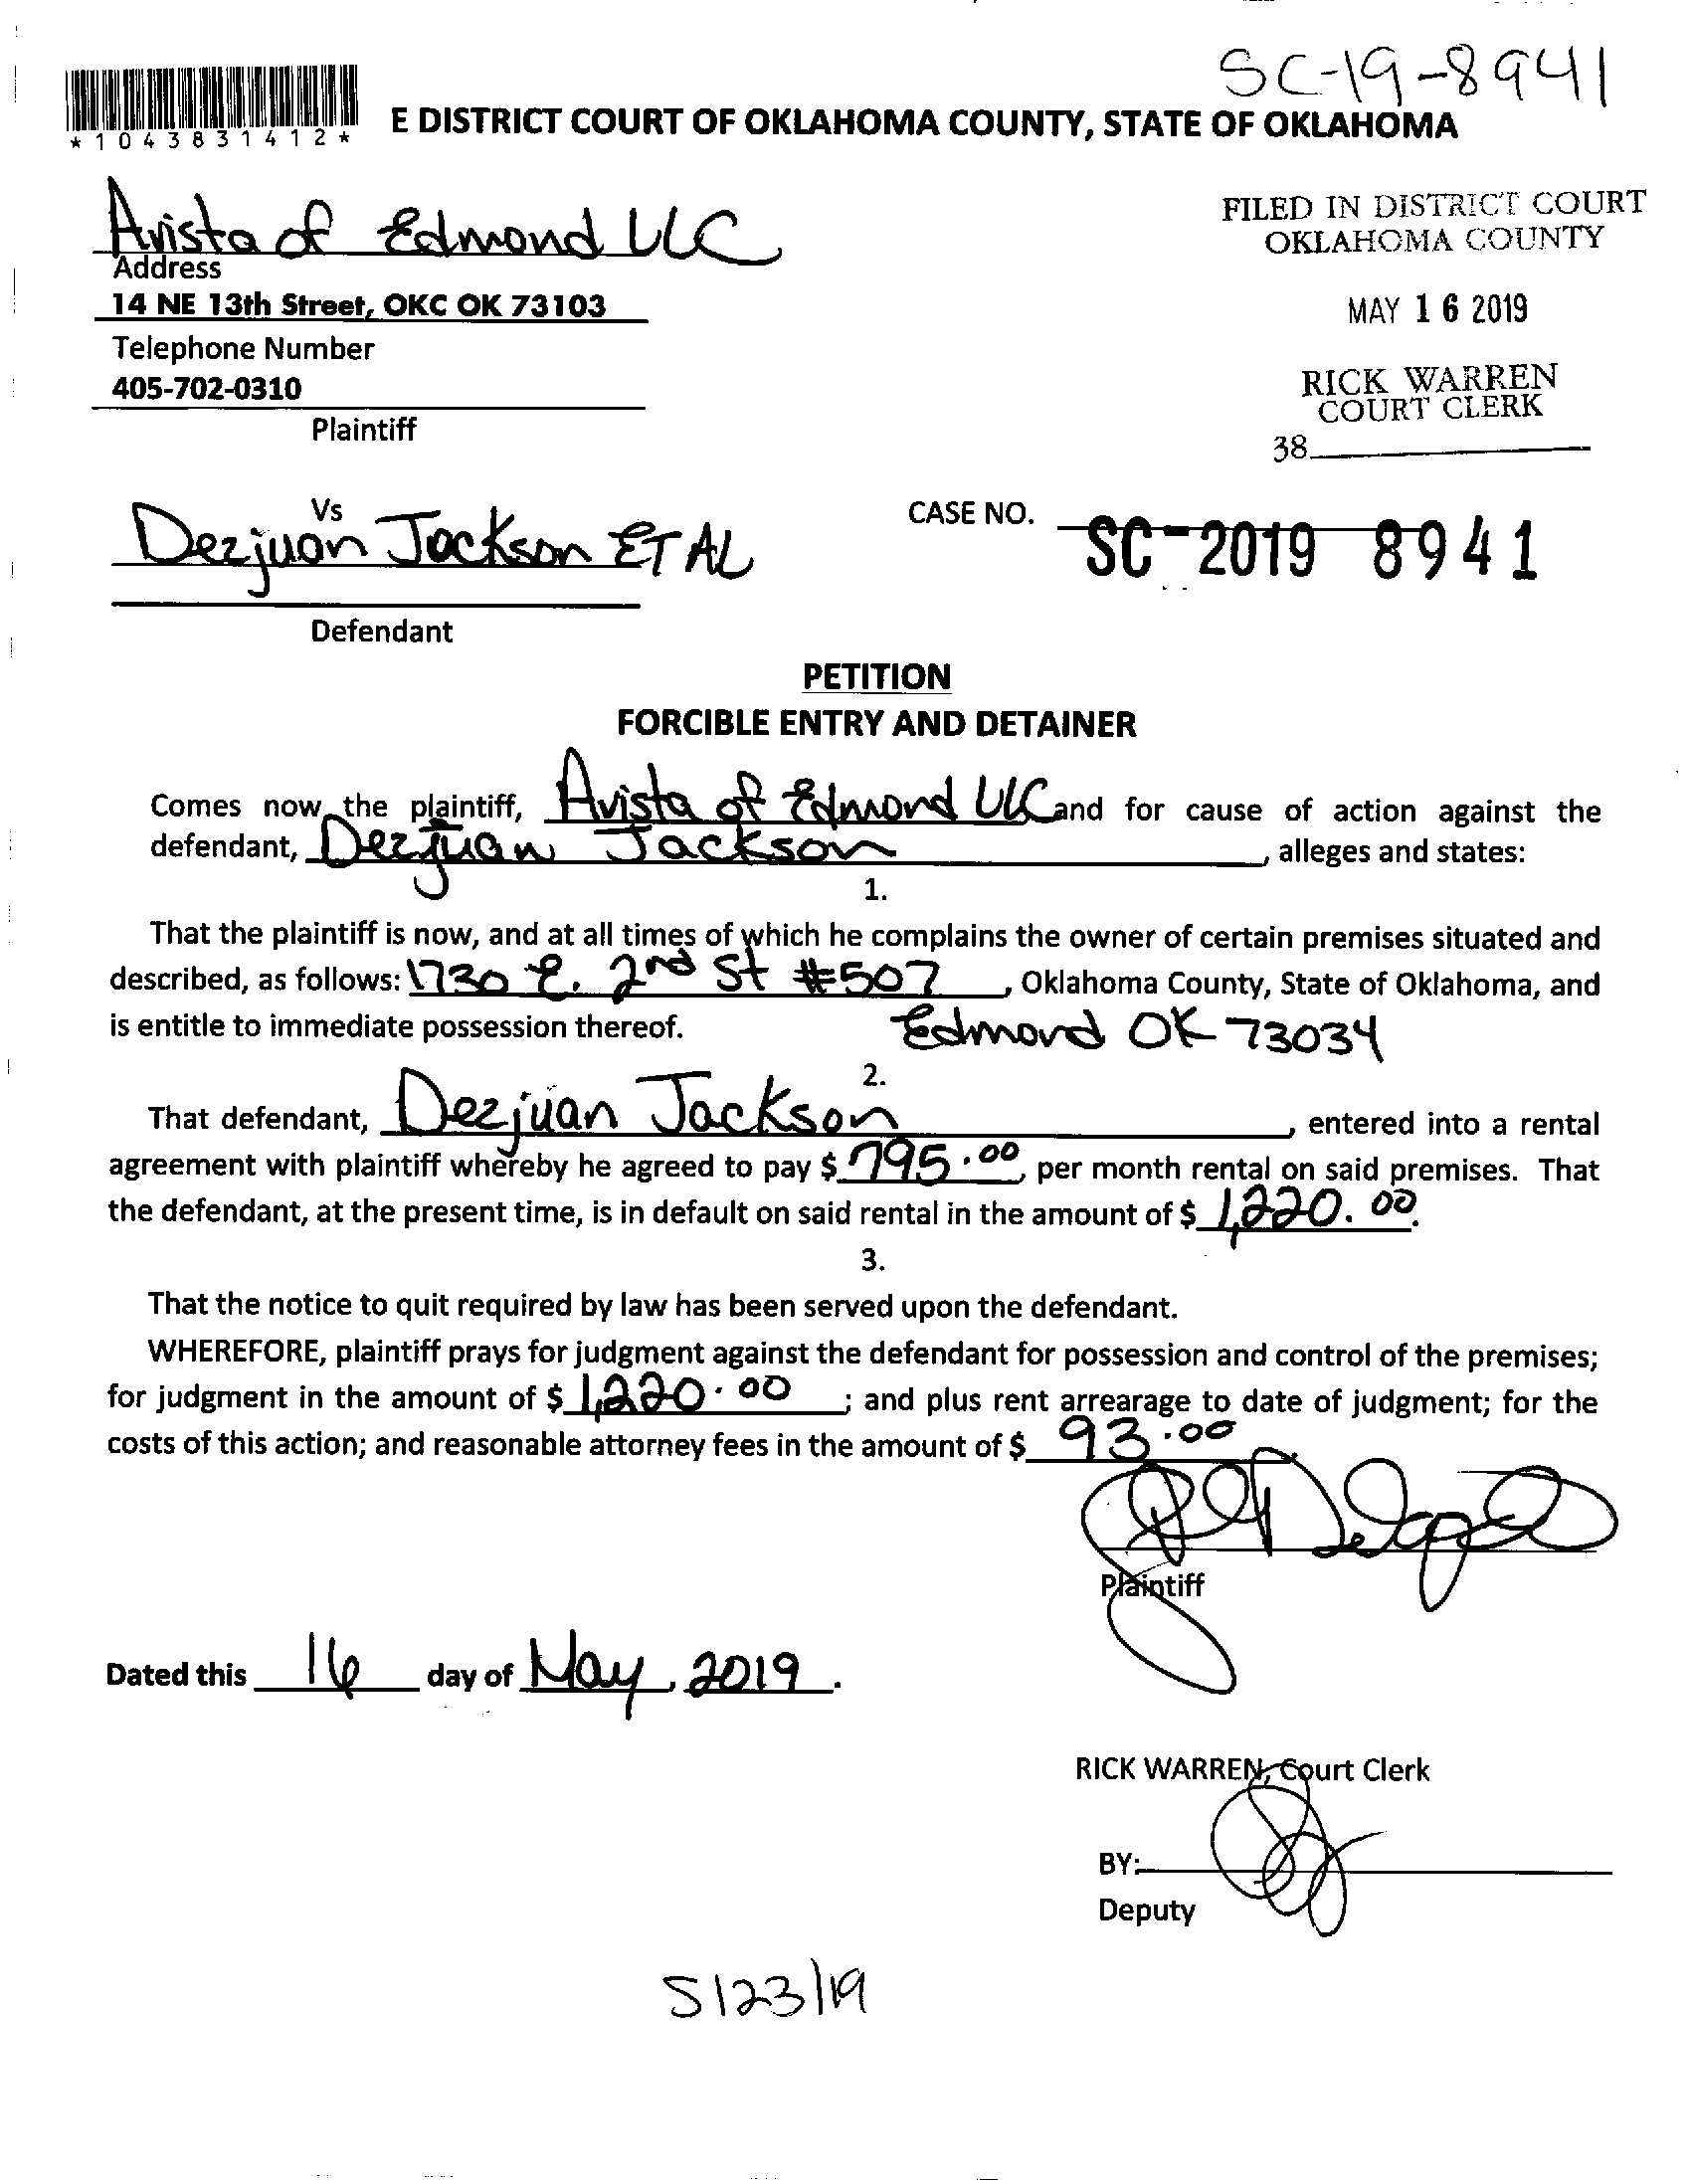 SC-19-8941
*1043831412*
E DISTRICT COURT OF OKLAHOMA COUNTY, STATE OF OKLAHOMA
Avista of Edmond LLC
Address
14 NE 13th Street, OKC OK 73103
Telephone Number
405-702-0310
Plaintiff
FILED IN DISTRICT COURT
OKLAHOMA COUNTY
MAY 16 2019
RICK WARREN
COURT CLERK
38
Vs
Dezjuan Jackson ET AL
Defendant
CASE NO. SC-2019 8941
PETITION
FORCIBLE ENTRY AND DETAINER
Comes now the plaintiff, Avista of Edmond LLC and for cause of action against the
defendant, Dezjuan Jackson, alleges and states:
1.
That the plaintiff is now, and at all times of which he complains the owner of certain premises situated and
described, as follows: 1730 E. 2nd St #507, Oklahoma County, State of Oklahoma, and
is entitle to immediate possession thereof. Edmond OK 73034
2.
That defendant, Dezjuan Jackson, entered into a rental
agreement with plaintiff whereby he agreed to pay $ 795.00, per month rental on said premises. That
the defendant, at the present time, is in default on said rental in the amount of $ 1,220.00.
3.
That the notice to quit required by law has been served upon the defendant.
WHEREFORE, plaintiff prays for judgment against the defendant for possession and control of the premises;
for judgment in the amount of $ 1,220.00; and plus rent arrearage to date of judgment; for the
costs of this action; and reasonable attorney fees in the amount of $ 93.00
Plaintiff
Dated this 16 day of May, 2019.
RICK WARREN, Court Clerk
BY:
Deputy
5/23/19